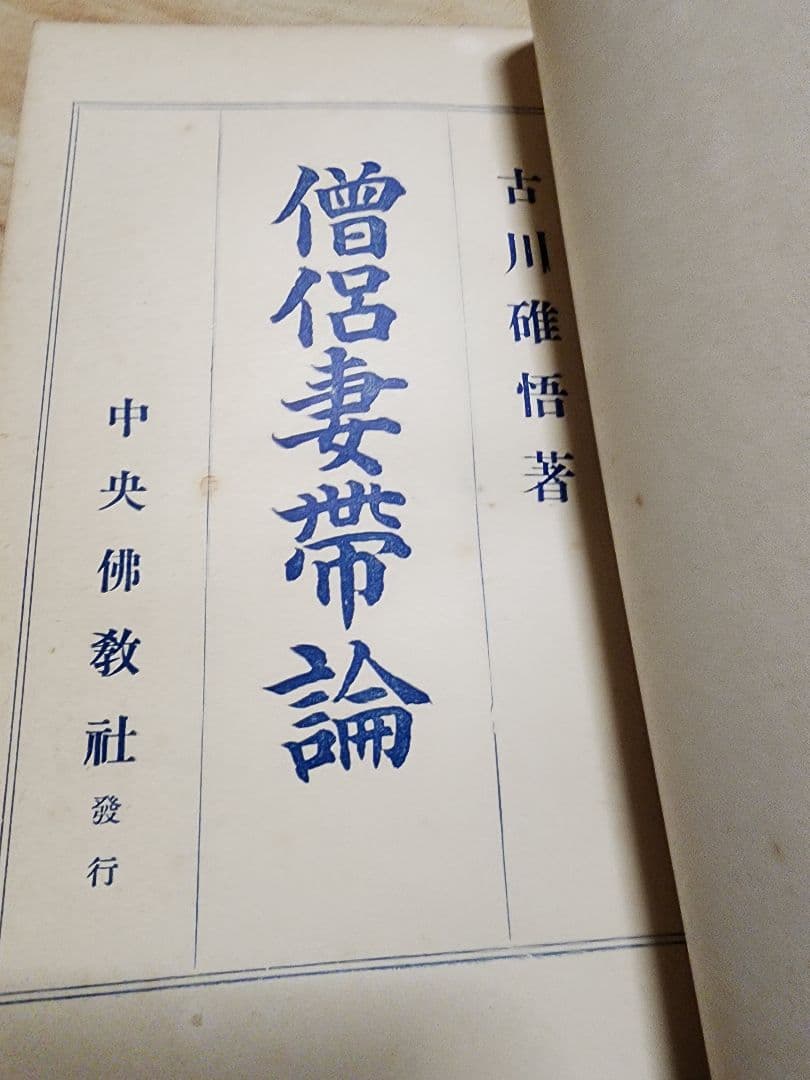 古川碓悟著
僧侶妻帶論
中央佛教社發行